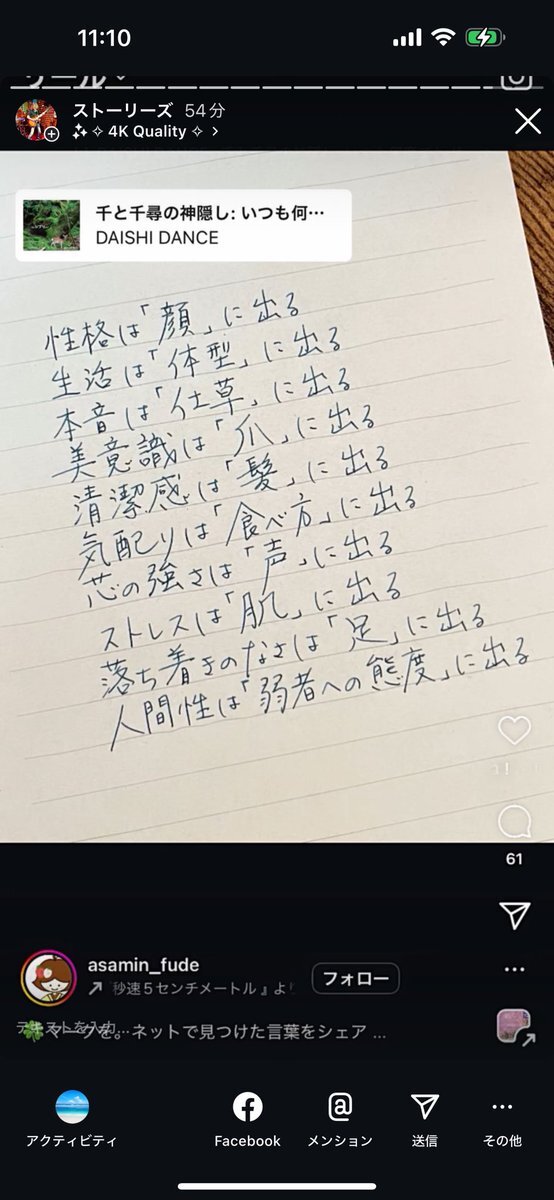 11:10
リール
ストーリーズ 54分
4K Quality
千と千尋の神隠し: いつも何…
DAISHI DANCE
性格は「顔」に出る
生活は「体型」に出る
本音は「仕草」に出る
美意識は「爪」に出る
清潔感は「髪」に出る
気配りは「食べ方」に出る
芯の強さは「声」に出る
ストレスは「肌」に出る
落ち着きのなさは「足」に出る
人間性は「弱者への態度」に出る
61
asamin_fude
フォロー
秒速5センチメートル』より
テキストを入力...
マークを。ネットで見つけた言葉をシェア ...
アクティビティ
Facebook
メンション
送信
その他